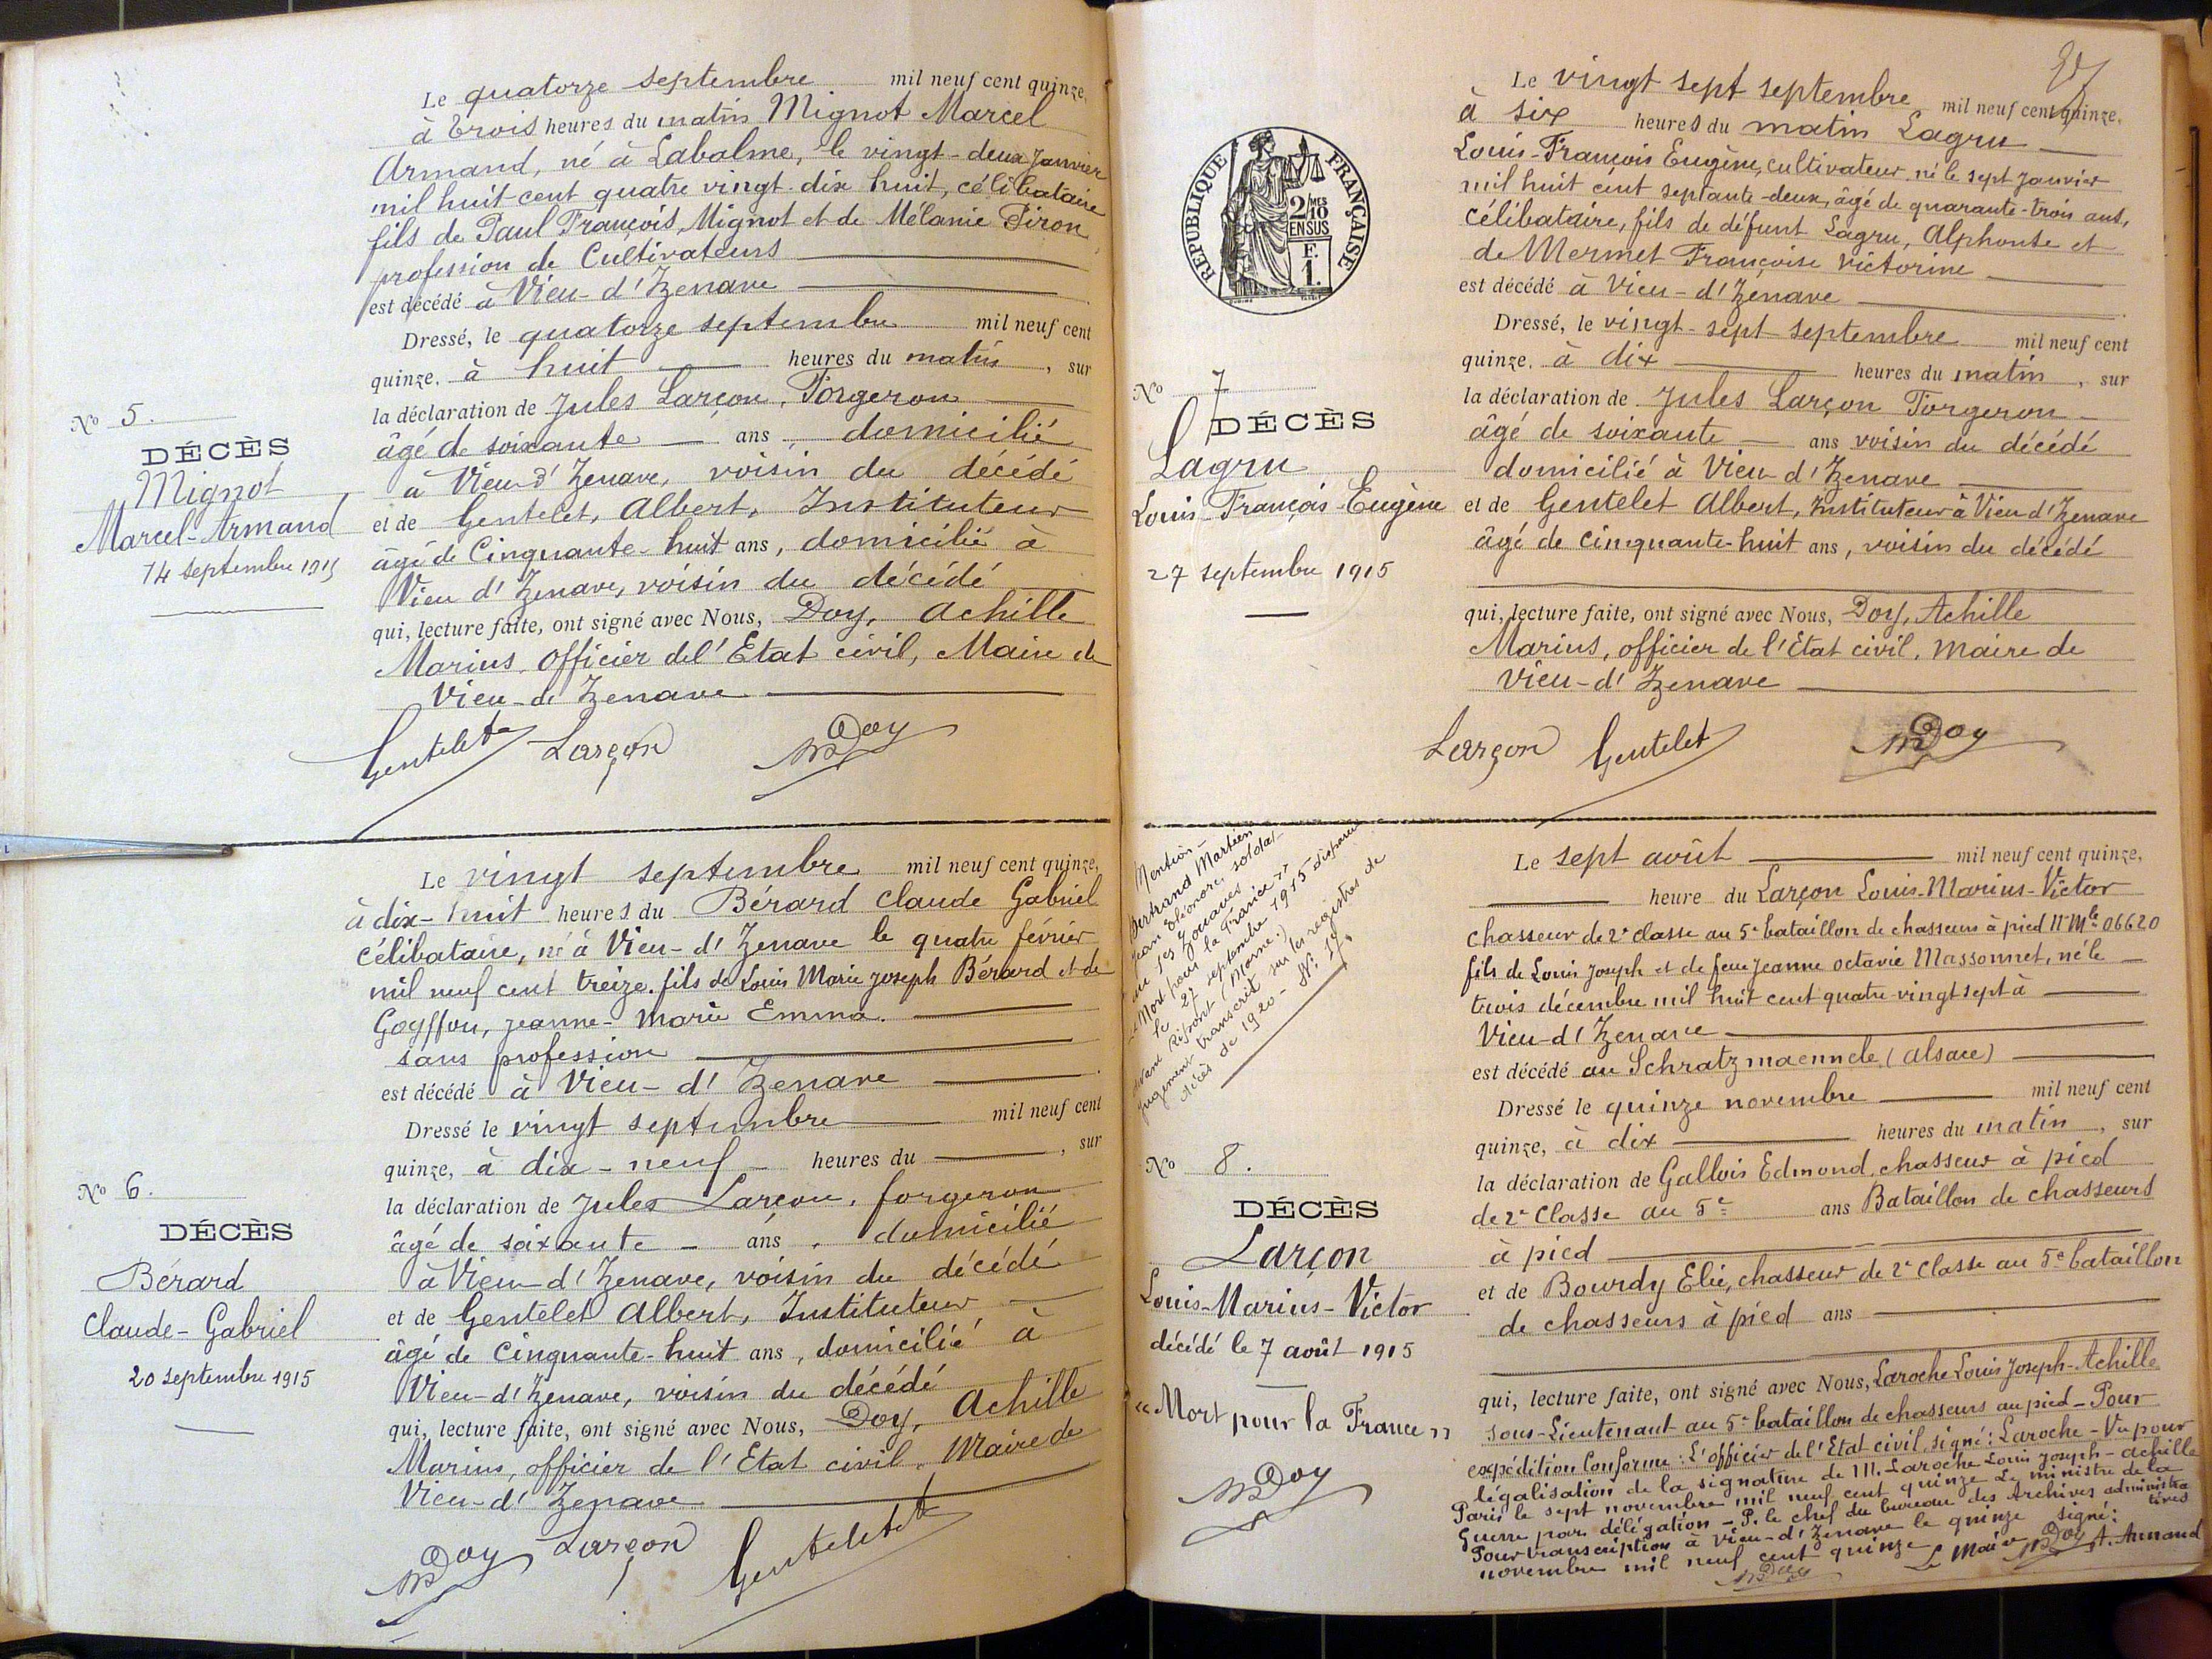 Le quatorze septembre mil neuf cent quinze,
à trois heures du matin Mignot Marcel
Armand, né à Labalme, le vingt-deux Janvier
mil huit-cent quatre vingt-dix huit, célibataire
fils de Paul François Mignot et de Mélanie Piron
profession de Cultivateurs
est décédé à Vieu-d'Izenave
Dressé, le quatorze septembre mil neuf cent
quinze, à huit heures du matin, sur
la déclaration de Jules Larçon, Forgeron
âgé de soixante ans, domicilié
à Vieu-d'Izenave, voisin du décédé
et de Gentelet, Albert, Instituteur
âgé de Cinquante-huit ans, domicilié à
Vieu d'Izenave, voisin du décédé
qui, lecture faite, ont signé avec Nous, Doy, Achille
Marius officier de l'Etat civil, Maire de
Vieu-d'Izenave
Gentelet Larçon Doy
No 5.
DÉCÈS
Mignot
Marcel-Armand
14 septembre 1915
Le vingt septembre mil neuf cent quinze,
à dix-huit heures du Bérard Claude Gabriel
célibataire, né à Vieu-d'Izenave le quatre février
mil neuf cent treize. fils de Louis Marie Joseph Bérard et de
Goyffon, Jeanne-Marie Emma.
sans profession
est décédé à Vieu-d'Izenave
Dressé le vingt septembre mil neuf cent
quinze, à dix-neuf heures du , sur
la déclaration de Jules Larçon, forgeron
âgé de soixante ans, domicilié
à Vieu-d'Izenave, voisin du décédé
et de Gentelet Albert, Instituteur
âgé de Cinquante-huit ans, domicilié à
Vieu-d'Izenave, voisin du décédé
qui, lecture faite, ont signé avec Nous, Doy, Achille
Marius, officier de l'Etat civil, Maire de
Vieu-d'Izenave
Doy Larçon Gentelet
No 6.
DÉCÈS
Bérard
Claude-Gabriel
20 septembre 1915
Le vingt sept septembre mil neuf cent quinze,
à six heures du matin Lagru
Louis-François Eugène, cultivateur, né le sept Janvier
mil huit cent septante-deux, âgé de quarante-trois ans,
célibataire, fils de défunt Lagru, Alphonse et
de Mermet Françoise Victorine
est décédé à Vieu-d'Izenave
Dressé, le vingt-sept septembre mil neuf cent
quinze, à dix heures du matin, sur
la déclaration de Jules Larçon Forgeron
âgé de soixante ans voisin du décédé
domicilié à Vieu-d'Izenave
et de Gentelet Albert, Instituteur à Vieu d'Izenave
âgé de cinquante-huit ans, voisin du décédé
qui, lecture faite, ont signé avec Nous, Doy, Achille
Marius, officier de l'Etat civil, Maire de
Vieu-d'Izenave
Larçon Gentelet Doy
RÉPUBLIQUE FRANÇAISE
2/10MES
EN SUS
F.
1.
No 7
DÉCÈS
Lagru
Louis-François-Eugène
27 septembre 1915
Mention
Bertrand Martien
Jean Eléonore, soldat
au zouaves
"Mort pour la France"
le 27 septembre 1915 disparu
(Marne)
jugement transcrit sur les registres de
décès de 1920 - No
Le sept août mil neuf cent quinze,
heure du Larçon Louis-Marius-Victor
chasseur de 2e classe au 5e bataillon de chasseurs à pied No Mle 06620
fils de Louis Joseph et de feue Jeanne Octavie Massonnet, né le
trois décembre mil huit cent quatre-vingt sept à
Vieu-d'Izenave
est décédé au Schratzmaennele (Alsace)
Dressé le quinze novembre mil neuf cent
quinze, à dix heures du matin, sur
la déclaration de Gallois Edmond, chasseur à pied
de 2e Classe au 5e ans Bataillon de chasseurs
à pied
et de Bourdy Elie, chasseur de 2e Classe au 5e bataillon
de chasseurs à pied ans
qui, lecture faite, ont signé avec Nous, Laroche Louis Joseph-Achille
sous-Lieutenant au 5e bataillon de chasseurs au pied - Pour
expédition Conforme: L'officier de l'Etat civil, signé: Laroche - Vu pour
légalisation de la signature de M. Laroche Louis Joseph-Achille
Paris le sept novembre mil neuf cent quinze Le ministre de la
Guerre par délégation - P. le chef du bureau des Archives administratives
Pour transcription à Vieu-d'Izenave le quinze signé:
novembre mil neuf cent quinze Le Maire Doy A. Aunand
Doy
No 8.
DÉCÈS
Larçon
Louis-Marius-Victor
décédé le 7 août 1915
"Mort pour la France"
Doy